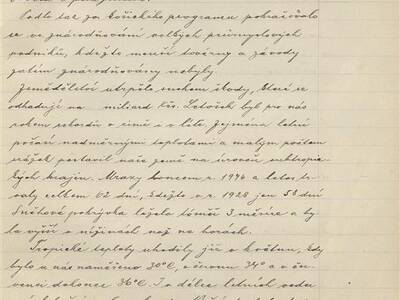 Podle tak zv. Košického programu pokračovalo
se ve znárodňování velkých průmyslových
podniků, kdežto menší továrny a závody
zatím znárodňovány nebyly.
Zemědělství utrpělo suchem škody, které se
odhadují na miliard Kčs. Letošek byl pro nás
rokem rekordů v zimě i v létě. Zejména letní
počasí nadměrnými teplotami a malým počtem
srážek postavil naše země na úroveň subtropic-
kých krajin. Mrazy koncem r. 1946 a letos tr-
valy celkem 62 dní, kdežto v r. 1928 jen 58 dní
Sněhová pokrývka ležela téměř 3 měsíce a by-
la vyšší v nížinách než na horách.
Tropické teploty uhodily již v květnu, kdy
bylo u nás naměřeno 30°C, v červnu 34° a v čer-
venci dokonce 36°C. Ta délce letních veder